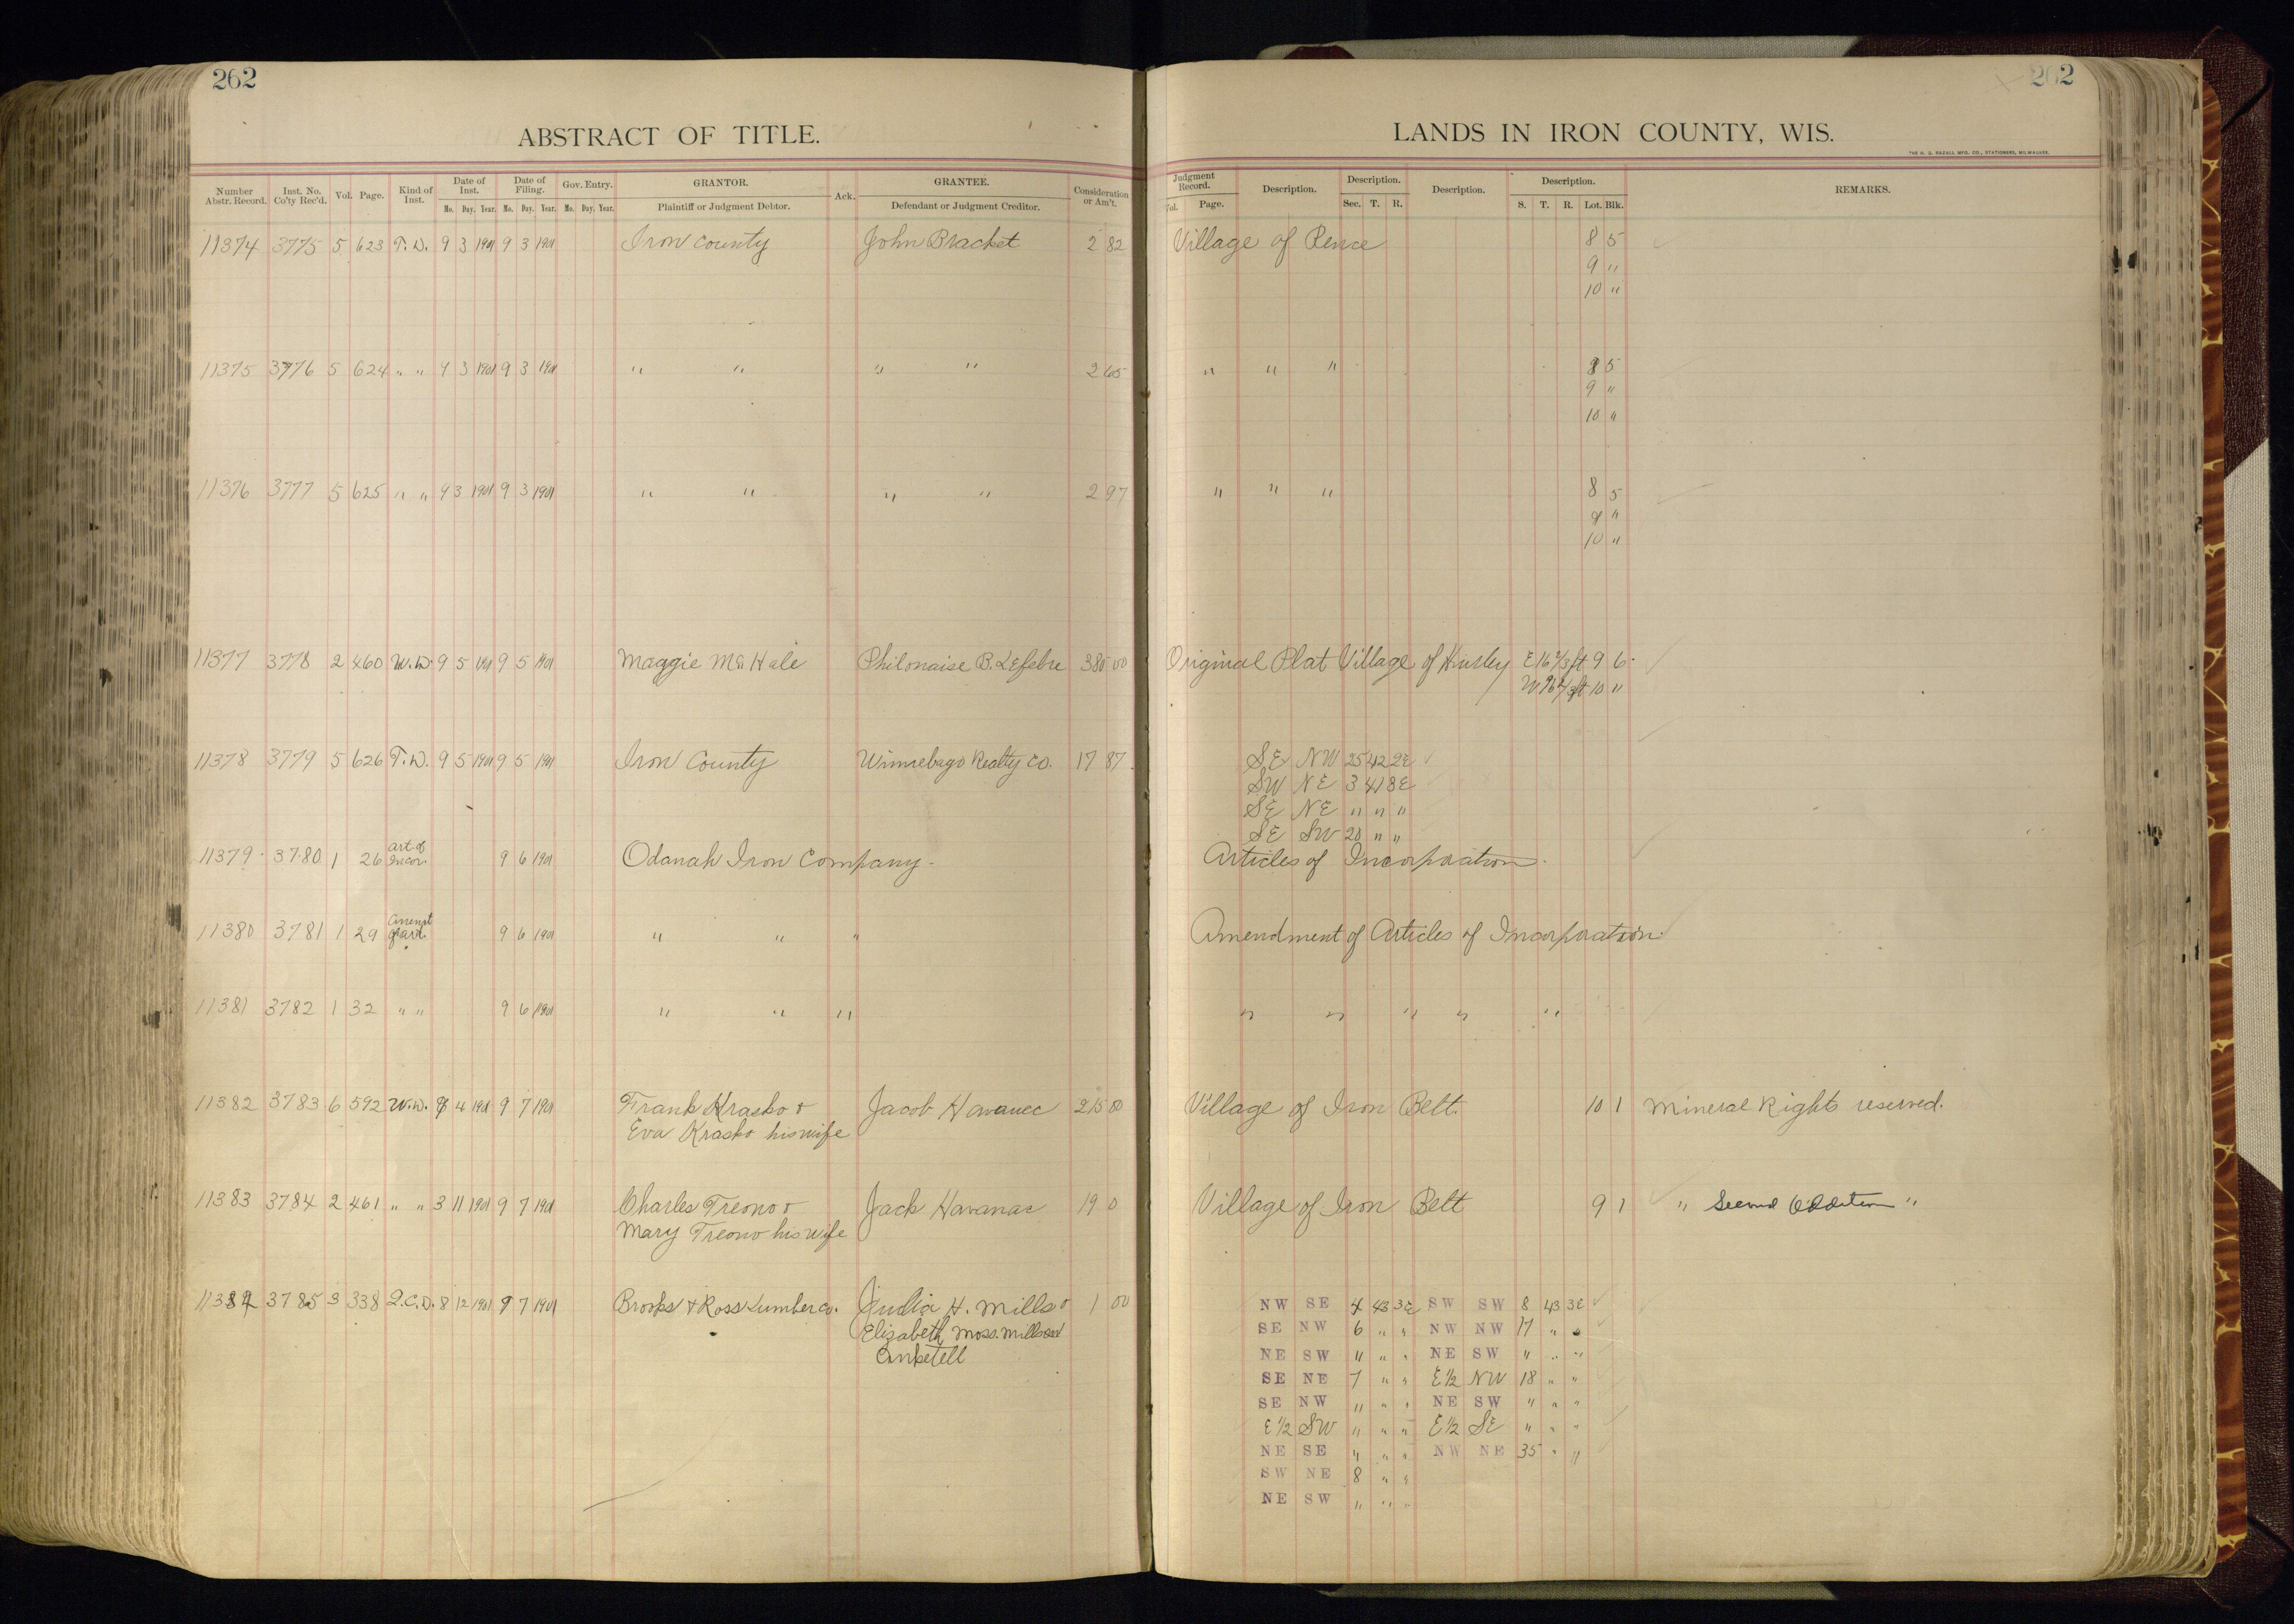 262
ABSTRACT OF TITLE.
Number Abstr. Record. Inst. No. Co'ty Rec'd. Vol. Page. Kind of Inst. Date of Inst. Mo. Day. Year. Date of Filing. Mo. Day. Year. Gov. Entry. Mo. Day. Year. GRANTOR. Plaintiff or Judgment Debtor. Ack. GRANTEE. Defendant or Judgment Creditor. Consideration or Am't.
11374 3775 5 623 T.D. 9 3 1901 9 3 1901 Iron County John Bracket 2 82
11375 3776 5 624 " " 9 3 1901 9 3 1901 " " " " 2 65
11376 3777 5 625 " " 9 3 1901 9 3 1901 " " " " 2 97
11377 3778 2 460 W.D. 9 5 1901 9 5 1901 Maggie Mc Hale Philonaise B. Lefebre 380 00
11378 3779 5 626 T.D. 9 5 1901 9 5 1901 Iron County Winnebago Realty Co. 17 87
11379 3780 1 26 art of Incor. 9 6 1901 Odanah Iron Company.
11380 3781 1 29 of art. 9 6 1901 " " "
11381 3782 1 32 " " 9 6 1901 " " "
11382 3783 6 592 W.D. 4 1901 9 7 1901 Frank Krasko & Jacob Havanec 215 00
Eva Krasko his wife
11383 3784 2 461 " " 3 11 1901 9 7 1901 Charles Treono & Jack Havanac 19 0
Mary Treono his wife
11384 3785 3 338 Q.C.D. 8 12 1901 9 7 1901 Brooks & Ross Lumber Co. Judia H. Mills & 1 00
Elizabeth Moss. Mills
Anketell
262
LANDS IN IRON COUNTY, WIS.
THE H. G. RAZALL MFG. CO., STATIONERS, MILWAUKEE.
Judgment Record. Vol. Page. Description. Description. Sec. T. R. Description. Description. S. T. R. Lot. Blk. REMARKS.
Village of Pence 8 5
9 "
10 "
" " " 8 5
9 "
10 "
" " " 8 5
9 "
10 "
Original Plat Village of Hurley E 16 2/3 ft 9 6
W ft 10 "
SE NW 25 42 2E
SW NE 3 41 3E
SE NE " " "
SE SW 20 " "
Articles of Incorporation.
Amendment of Articles of Incorporation.
" " " " "
Village of Iron Belt. 10 1 Mineral Rights reserved.
Village of Iron Belt 9 1 " Second Addition "
NW SE 4 43 3E SW SW 8 43 3E
SE NW 6 " " NW NW 17 " "
NE SW " " " NE SW " " "
SE NE 7 " " E½ NW 18 " "
SE NW " " " NE SW " " "
E½ SW " " " E½ SE " " "
NE SE " " " NW NE 35 " "
SW NE 8 " "
NE SW " " "